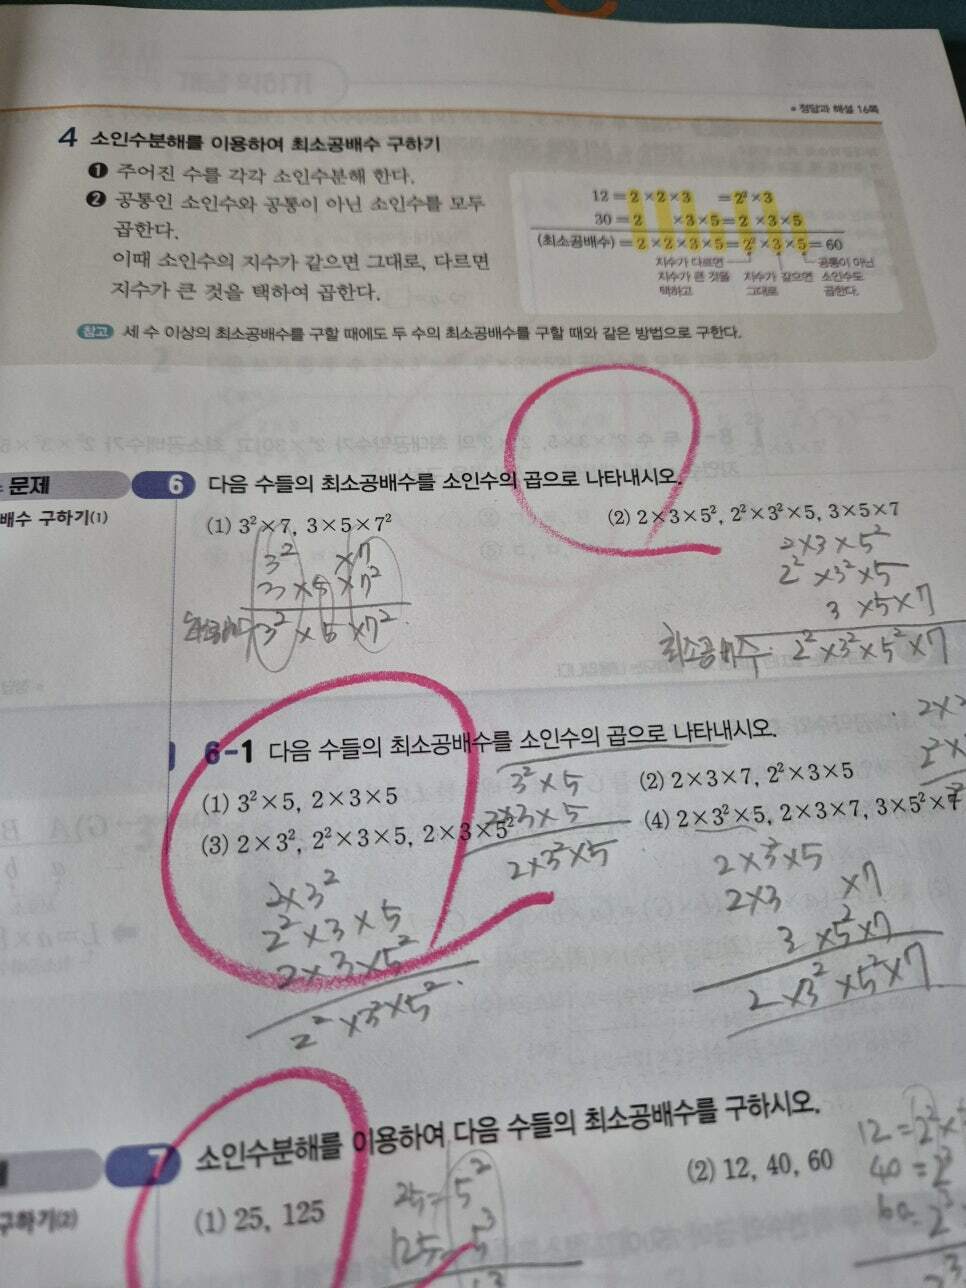 • 정답과 해설 16쪽
4 소인수분해를 이용하여 최소공배수 구하기
❶ 주어진 수를 각각 소인수분해 한다.
❷ 공통인 소인수와 공통이 아닌 소인수를 모두
곱한다.
이때 소인수의 지수가 같으면 그대로, 다르면
지수가 큰 것을 택하여 곱한다.
12 = 2 × 2 × 3 = 2² × 3
30 = 2 × 3 × 5 = 2 × 3 × 5
(최소공배수) = 2 × 2 × 3 × 5 = 2² × 3 × 5 = 60
지수가 다르면 지수가 큰 것을 택하고
지수가 같으면 그대로
공통이 아닌 소인수도 곱한다.
참고 세 수 이상의 최소공배수를 구할 때에도 두 수의 최소공배수를 구할 때와 같은 방법으로 구한다.
문제
배수 구하기(1)
6 다음 수들의 최소공배수를 소인수의 곱으로 나타내시오.
(1) 3²×7, 3×5×7²
3² ×7
3 ×5 ×7²
3² ×5 ×7²
(2) 2×3×5², 2²×3²×5, 3×5×7
2×3×5²
2²×3²×5
3×5×7
최소공배수: 2²×3²×5²×7
6-1 다음 수들의 최소공배수를 소인수의 곱으로 나타내시오.
(1) 3²×5, 2×3×5
3²×5
2×3×5
2×3²×5
(2) 2×3×7, 2²×3×5
(3) 2×3², 2²×3×5, 2×3×5²
2×3²
2²×3×5
2×3×5²
2²×3²×5²
(4) 2×3²×5, 2×3×7, 3×5²×7
2×3²×5
2×3 ×7
3×5²×7
2×3²×5²×7
7 소인수분해를 이용하여 다음 수들의 최소공배수를 구하시오.
구하기(2)
(1) 25, 125
25=5²
125=5³
(2) 12, 40, 60
12=2²×
40=2³
60=2²